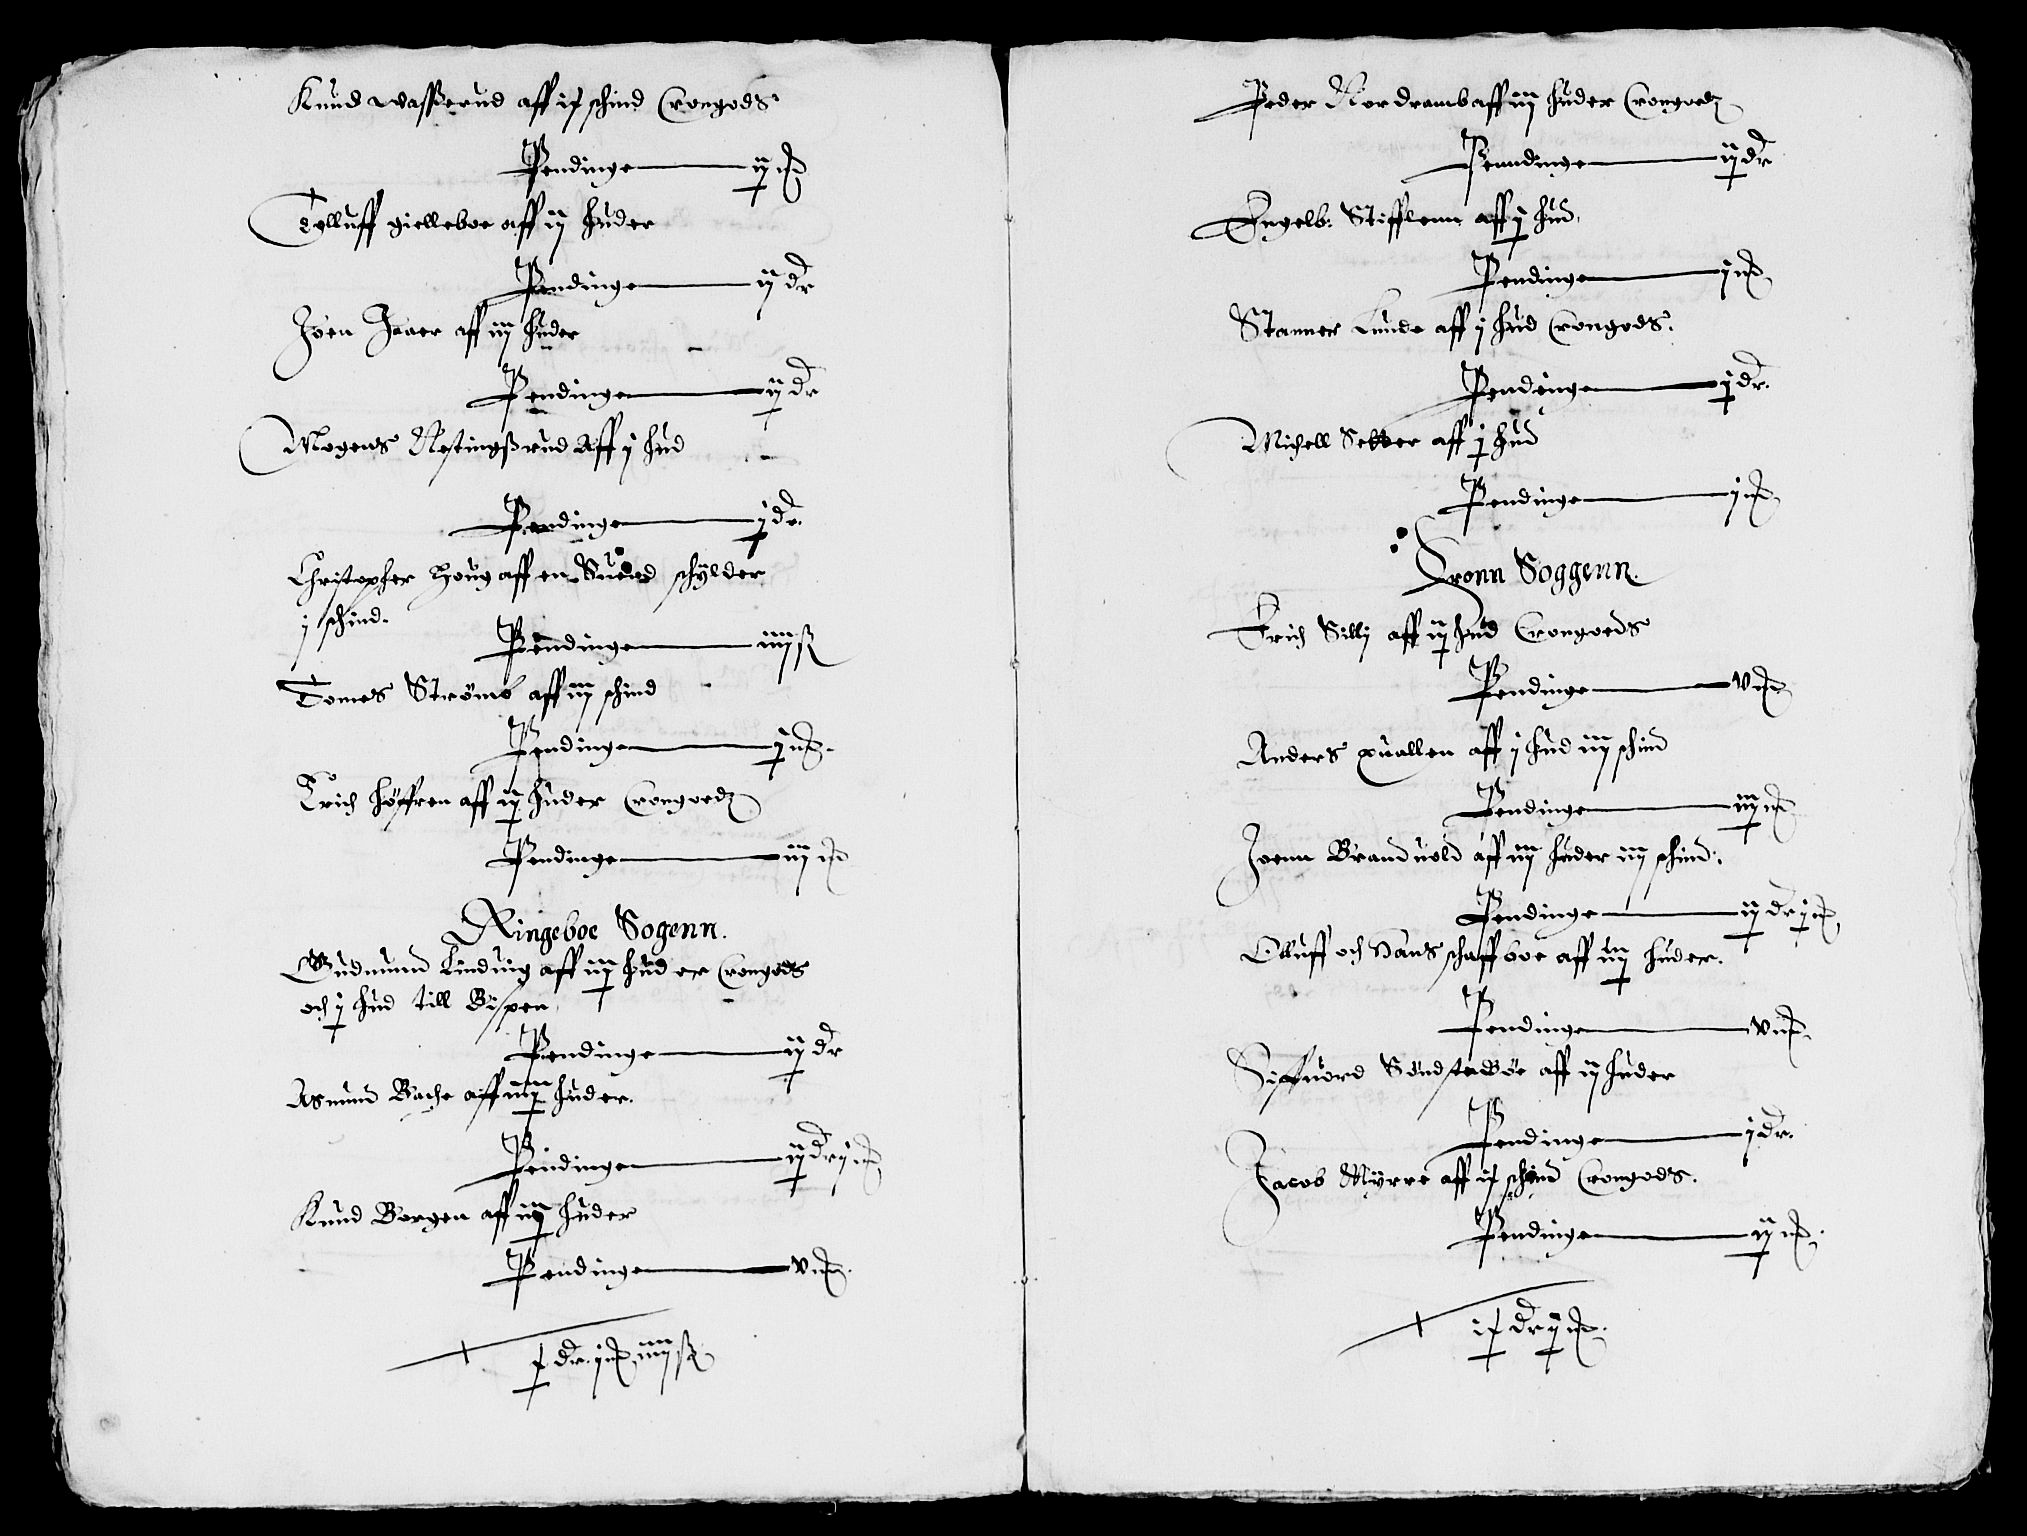 Knud wasserud aff ix schind Crongods
Pendinge — ij mk
Tolluff gielleboe aff ij huder
Pendinge — ij dr
Joen Jauer aff iij huder
Pendinge — ij dr
Mogens Nestingßrud aff j hud
Pendinge — j dr.
Christopher Houg aff en Suend schylder
j schind.
Pendinge — iiij ß
Tomes Strömb aff iij schind
Pendinge — j mk.
Erich höffren aff ij huder Crongods
Pendinge — iij mk
Ringeboe Sogenn.
Gudmund Linduig aff iij huder Crongods
och j hud till Bispen
Pendinge — ij dr
Asmund Bache aff iiij huder.
Pendinge — ij dr j mk
Knud Borgen aff iij huder
Pendinge — v mk.
x dr. j mk iiij ß
Peder Nordramb aff iij huder Crongods
Penndinge — ij dr
Engelb: Stifflenn aff j hud.
Pendinge — j mk
Stanner Lunde aff j hud Crongods.
Pendinge — j dr.
Michell Setter aff j hud
Pendinge — j mk
Fronn Soggenn.
Erich Silly aff ij hud Crongods
Pendinge — v mk
Anders quallen aff j hud iij schind
Pendinge — iij mk
Joenn Branduold aff iij huder iij schind.
Pendinge — ij dr j mk
Olluff och Hans schaffboe aff iij huder.
Pendinge — v mk.
Siffuord Söndsteböe aff ij huder
Pendinge — j dr.
Jacob Myrre aff ix schind Crongods.
Pendinge — ij mk.
ix dr ij mk.